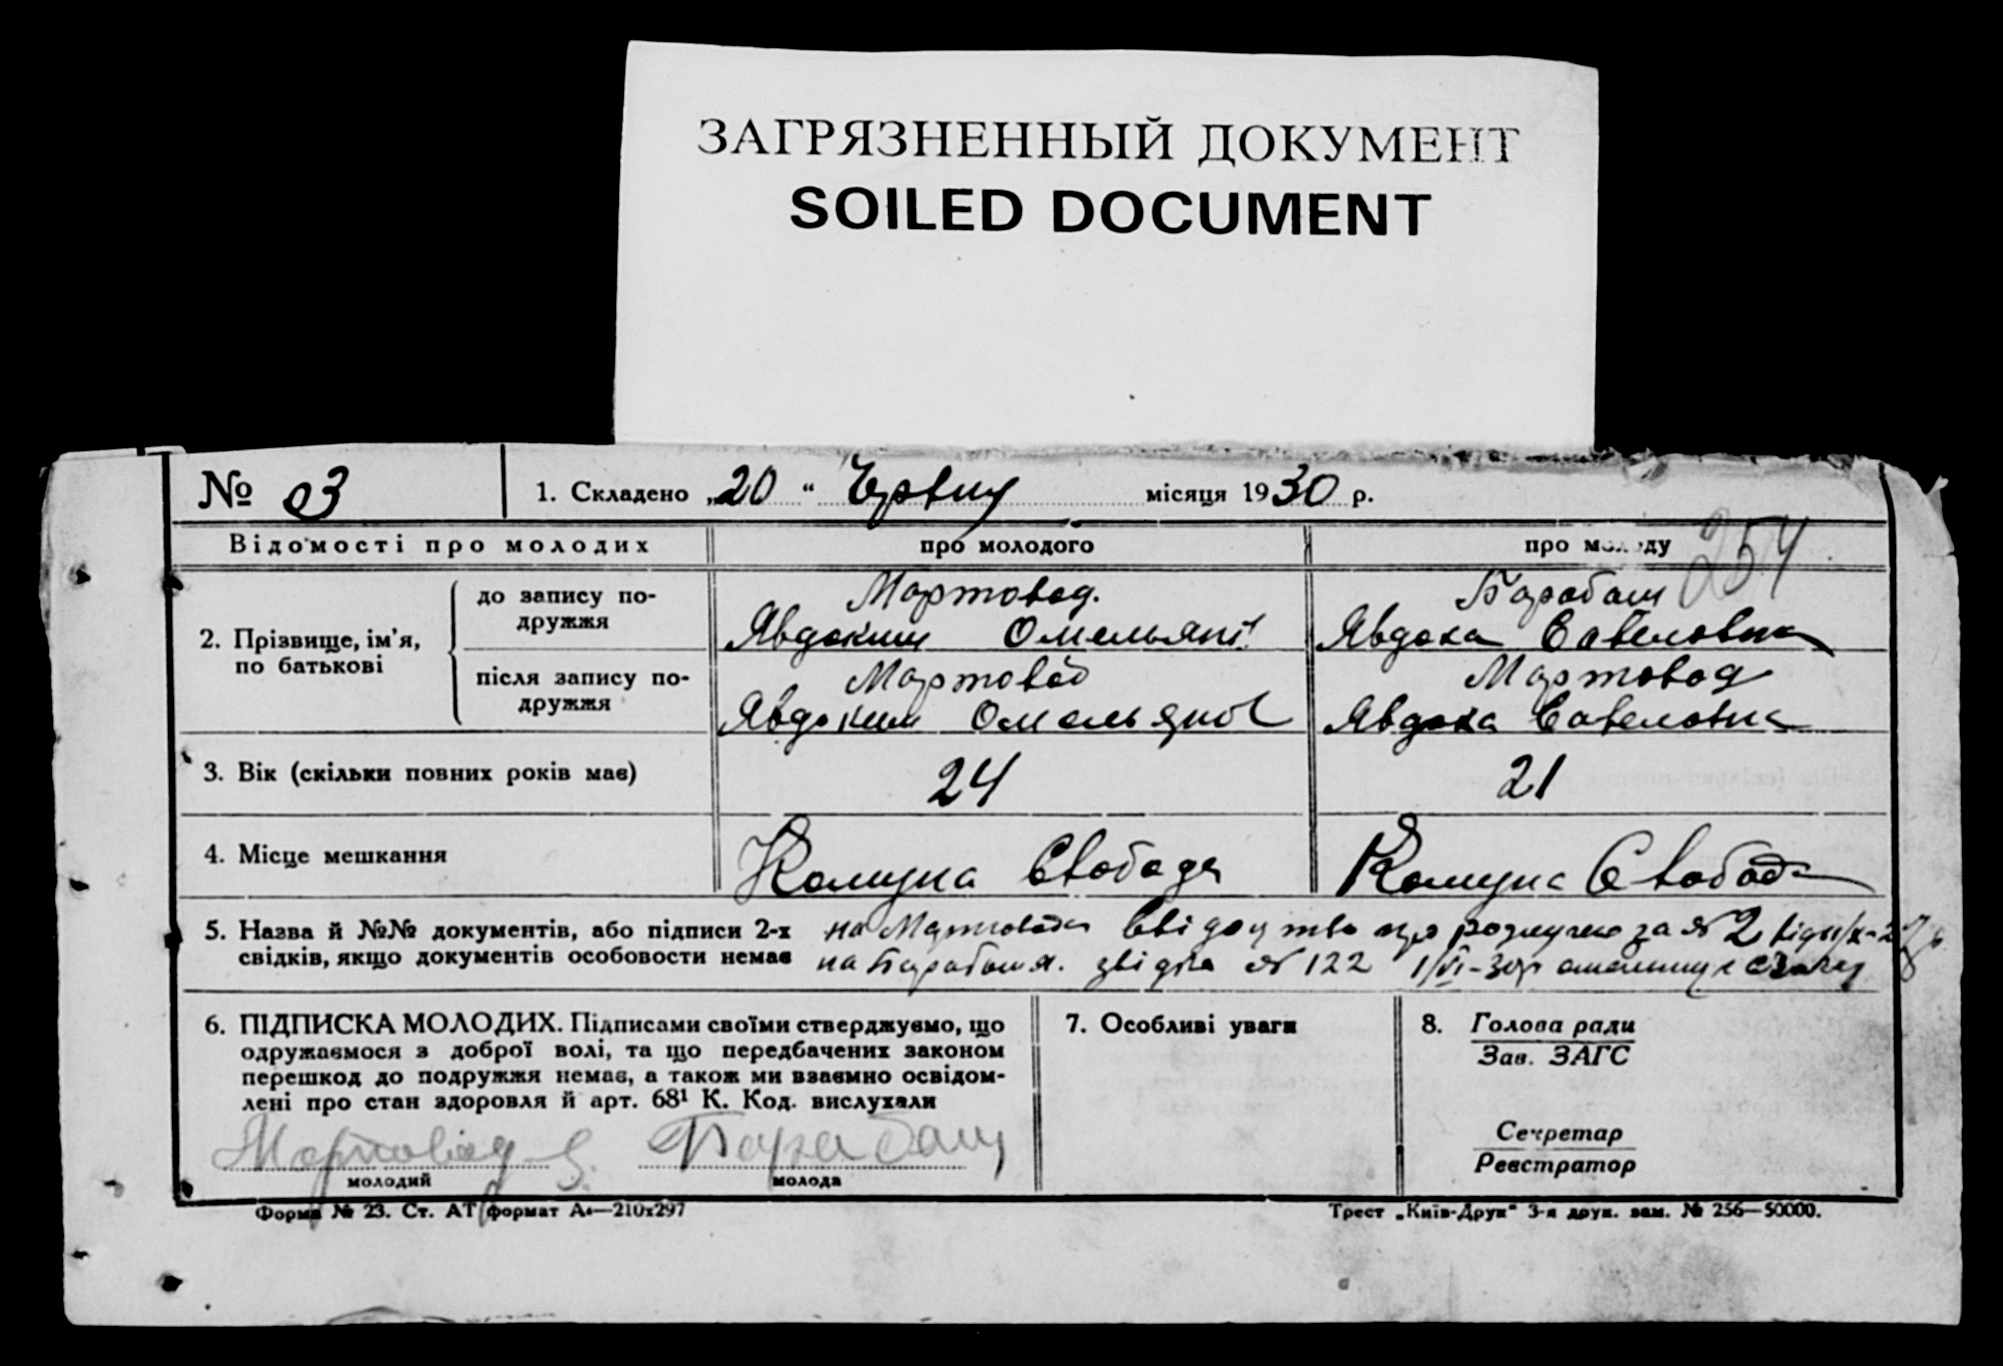 ЗАГРЯЗНЕННЫЙ ДОКУМЕНТ
SOILED DOCUMENT
№ 03 1. Складено „20“ Червня місяця 1930 р.
254
Відомості про молодих про молодого про молоду
2. Прізвище, ім’я, по батькові
до запису подружжя
Мартовод. Барабаш
Явдоким Омельянів Явдоха Савеловна
після запису подружжя
Мартовод Мартовод
Явдоким Омельянов Явдоха Савеловна
3. Вік (скільки повних років має) 24 21
4. Місце мешкання Комуна Свобода Комуна Свобода
5. Назва й №№ документів, або підписи 2-х на Мартовода Свідоцтво про розлучено за № 2
свідків, якщо документів особовости немає на Барабаш. № 122 1/VI-30р
6. ПІДПИСКА МОЛОДИХ. Підписами своїми стверджуємо, що
одружаємося з доброї волі, та що передбачених законом
перешкод до подружжя немає, а також ми взаємно освідом-
лені про стан здоровля й арт. 68¹ К. Код. вислухали
Мартовод Барабаш
молодий молода
7. Особливі уваги
8. Голова ради
Зав. ЗАГС
Секретар
Реєстратор
Форма № 23. Ст. АТ формат А₄—210х297 Трест „Київ-Друк“ 3-я друк. зам. № 256—50000.